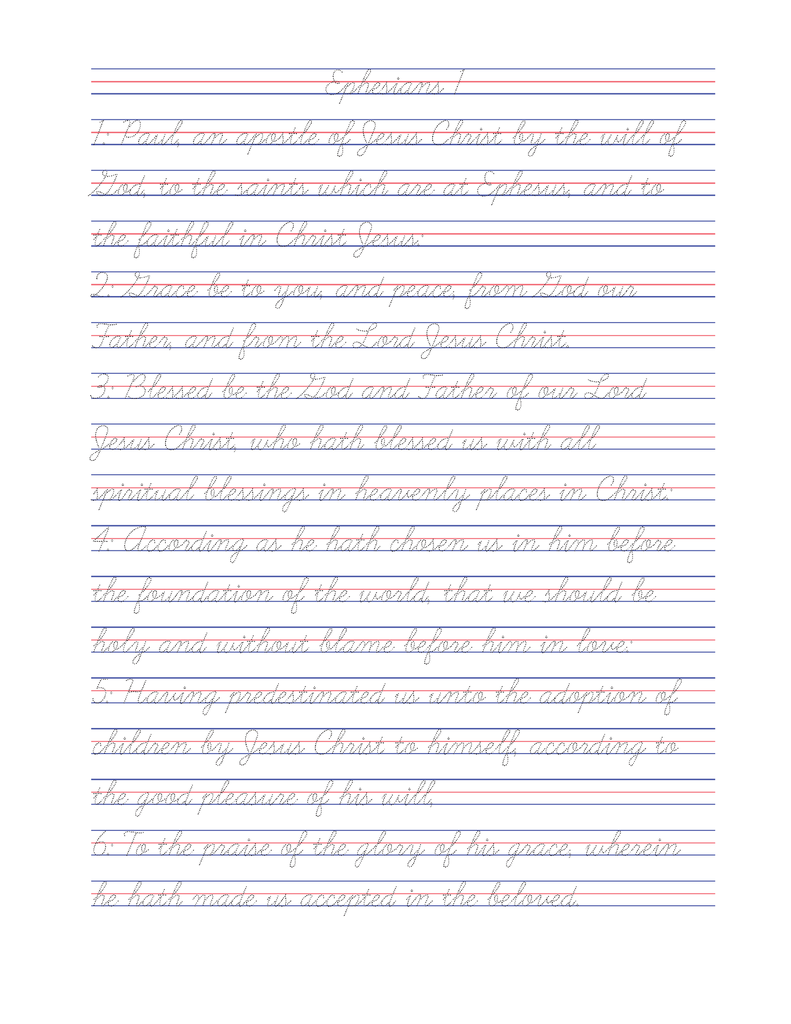 Ephesians 1
1: Paul, an apostle of Jesus Christ by the will of
God, to the saints which are at Ephesus, and to
the faithful in Christ Jesus:
2: Grace be to you, and peace, from God our
Father, and from the Lord Jesus Christ.
3: Blessed be the God and Father of our Lord
Jesus Christ, who hath blessed us with all
spiritual blessings in heavenly places in Christ:
4: According as he hath chosen us in him before
the foundation of the world, that we should be
holy and without blame before him in love:
5: Having predestinated us unto the adoption of
children by Jesus Christ to himself, according to
the good pleasure of his will,
6: To the praise of the glory of his grace, wherein
he hath made us accepted in the beloved.